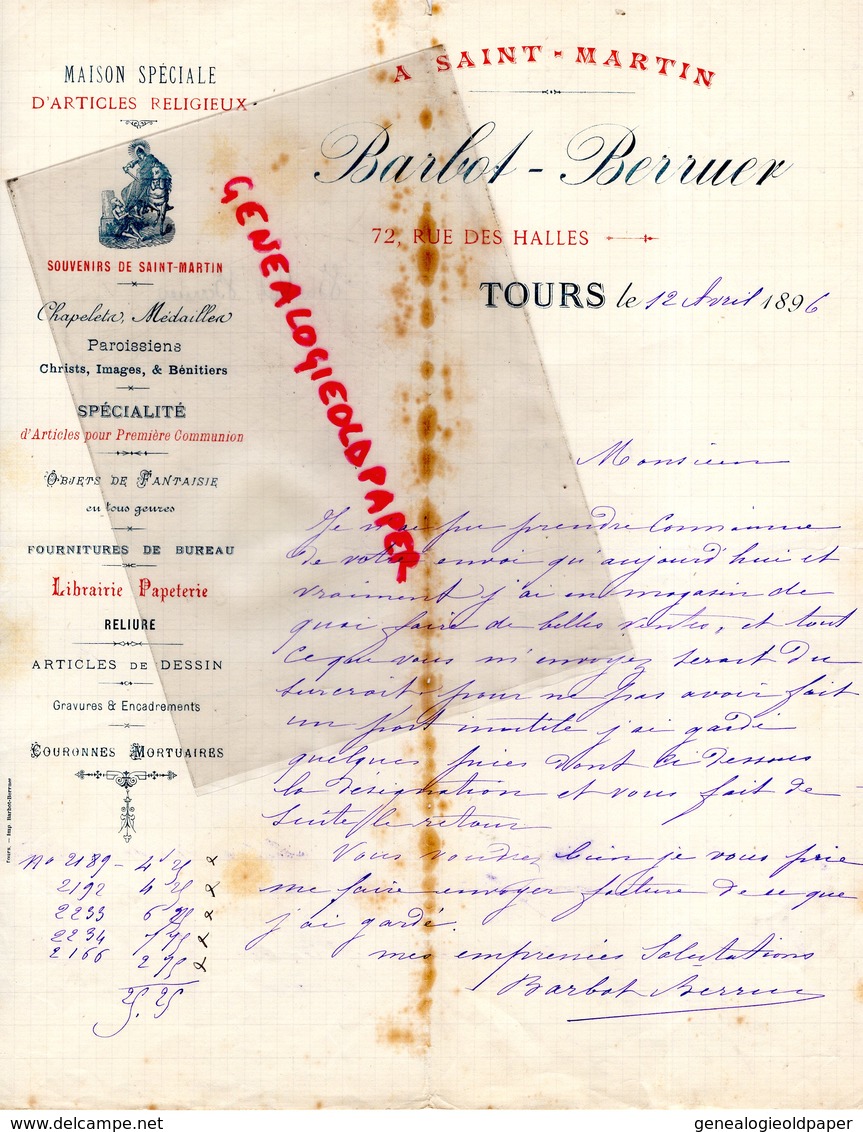 MAISON SPÉCIALE
D'ARTICLES RELIGIEUX
SOUVENIRS DE SAINT-MARTIN
Chapelets, Médailles
Paroissiens
Christs, Images, & Bénitiers
SPÉCIALITÉ
d'Articles pour Première Communion
OBJETS DE FANTAISIE
en tous genres
FOURNITURES DE BUREAU
Librairie Papeterie
RELIURE
ARTICLES DE DESSIN
Gravures & Encadrements
COURONNES MORTUAIRES
Tours. — Imp Barbot-Berruer
A SAINT-MARTIN
Barbot-Berruer
72, RUE DES HALLES
TOURS le 12 Avril 1896
Monsieur
Je n'ai pu prendre
de votre envoi qu'aujourd'hui et
vraiment j'ai en magasin de
quoi faire de belles ventes, et tout
ce que vous m'envoyez serait du
surcroit, pour ne pas avoir fait
un port inutile j'ai gardé
quelques pièces dont ci dessous
la désignation et vous fait de
suite le retour
Vous voudrez bien je vous prie
me faire envoyer facture de ce que
j'ai gardé.
mes empressées Salutations
Barbot Berruer
No 2189 - 4 25
2192 4 25
2233
2234
2166 2 95
25.25
GENEALOGIEOLDPAPER
www.delcampe.net
genealogieoldpaper